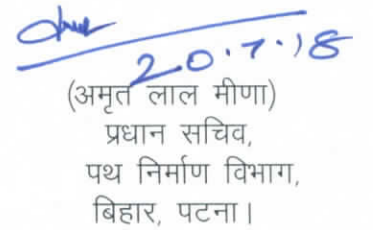 20.7.18
(अमृत लाल मीणा)
प्रधान सचिव,
पथ निर्माण विभाग,
बिहार, पटना।